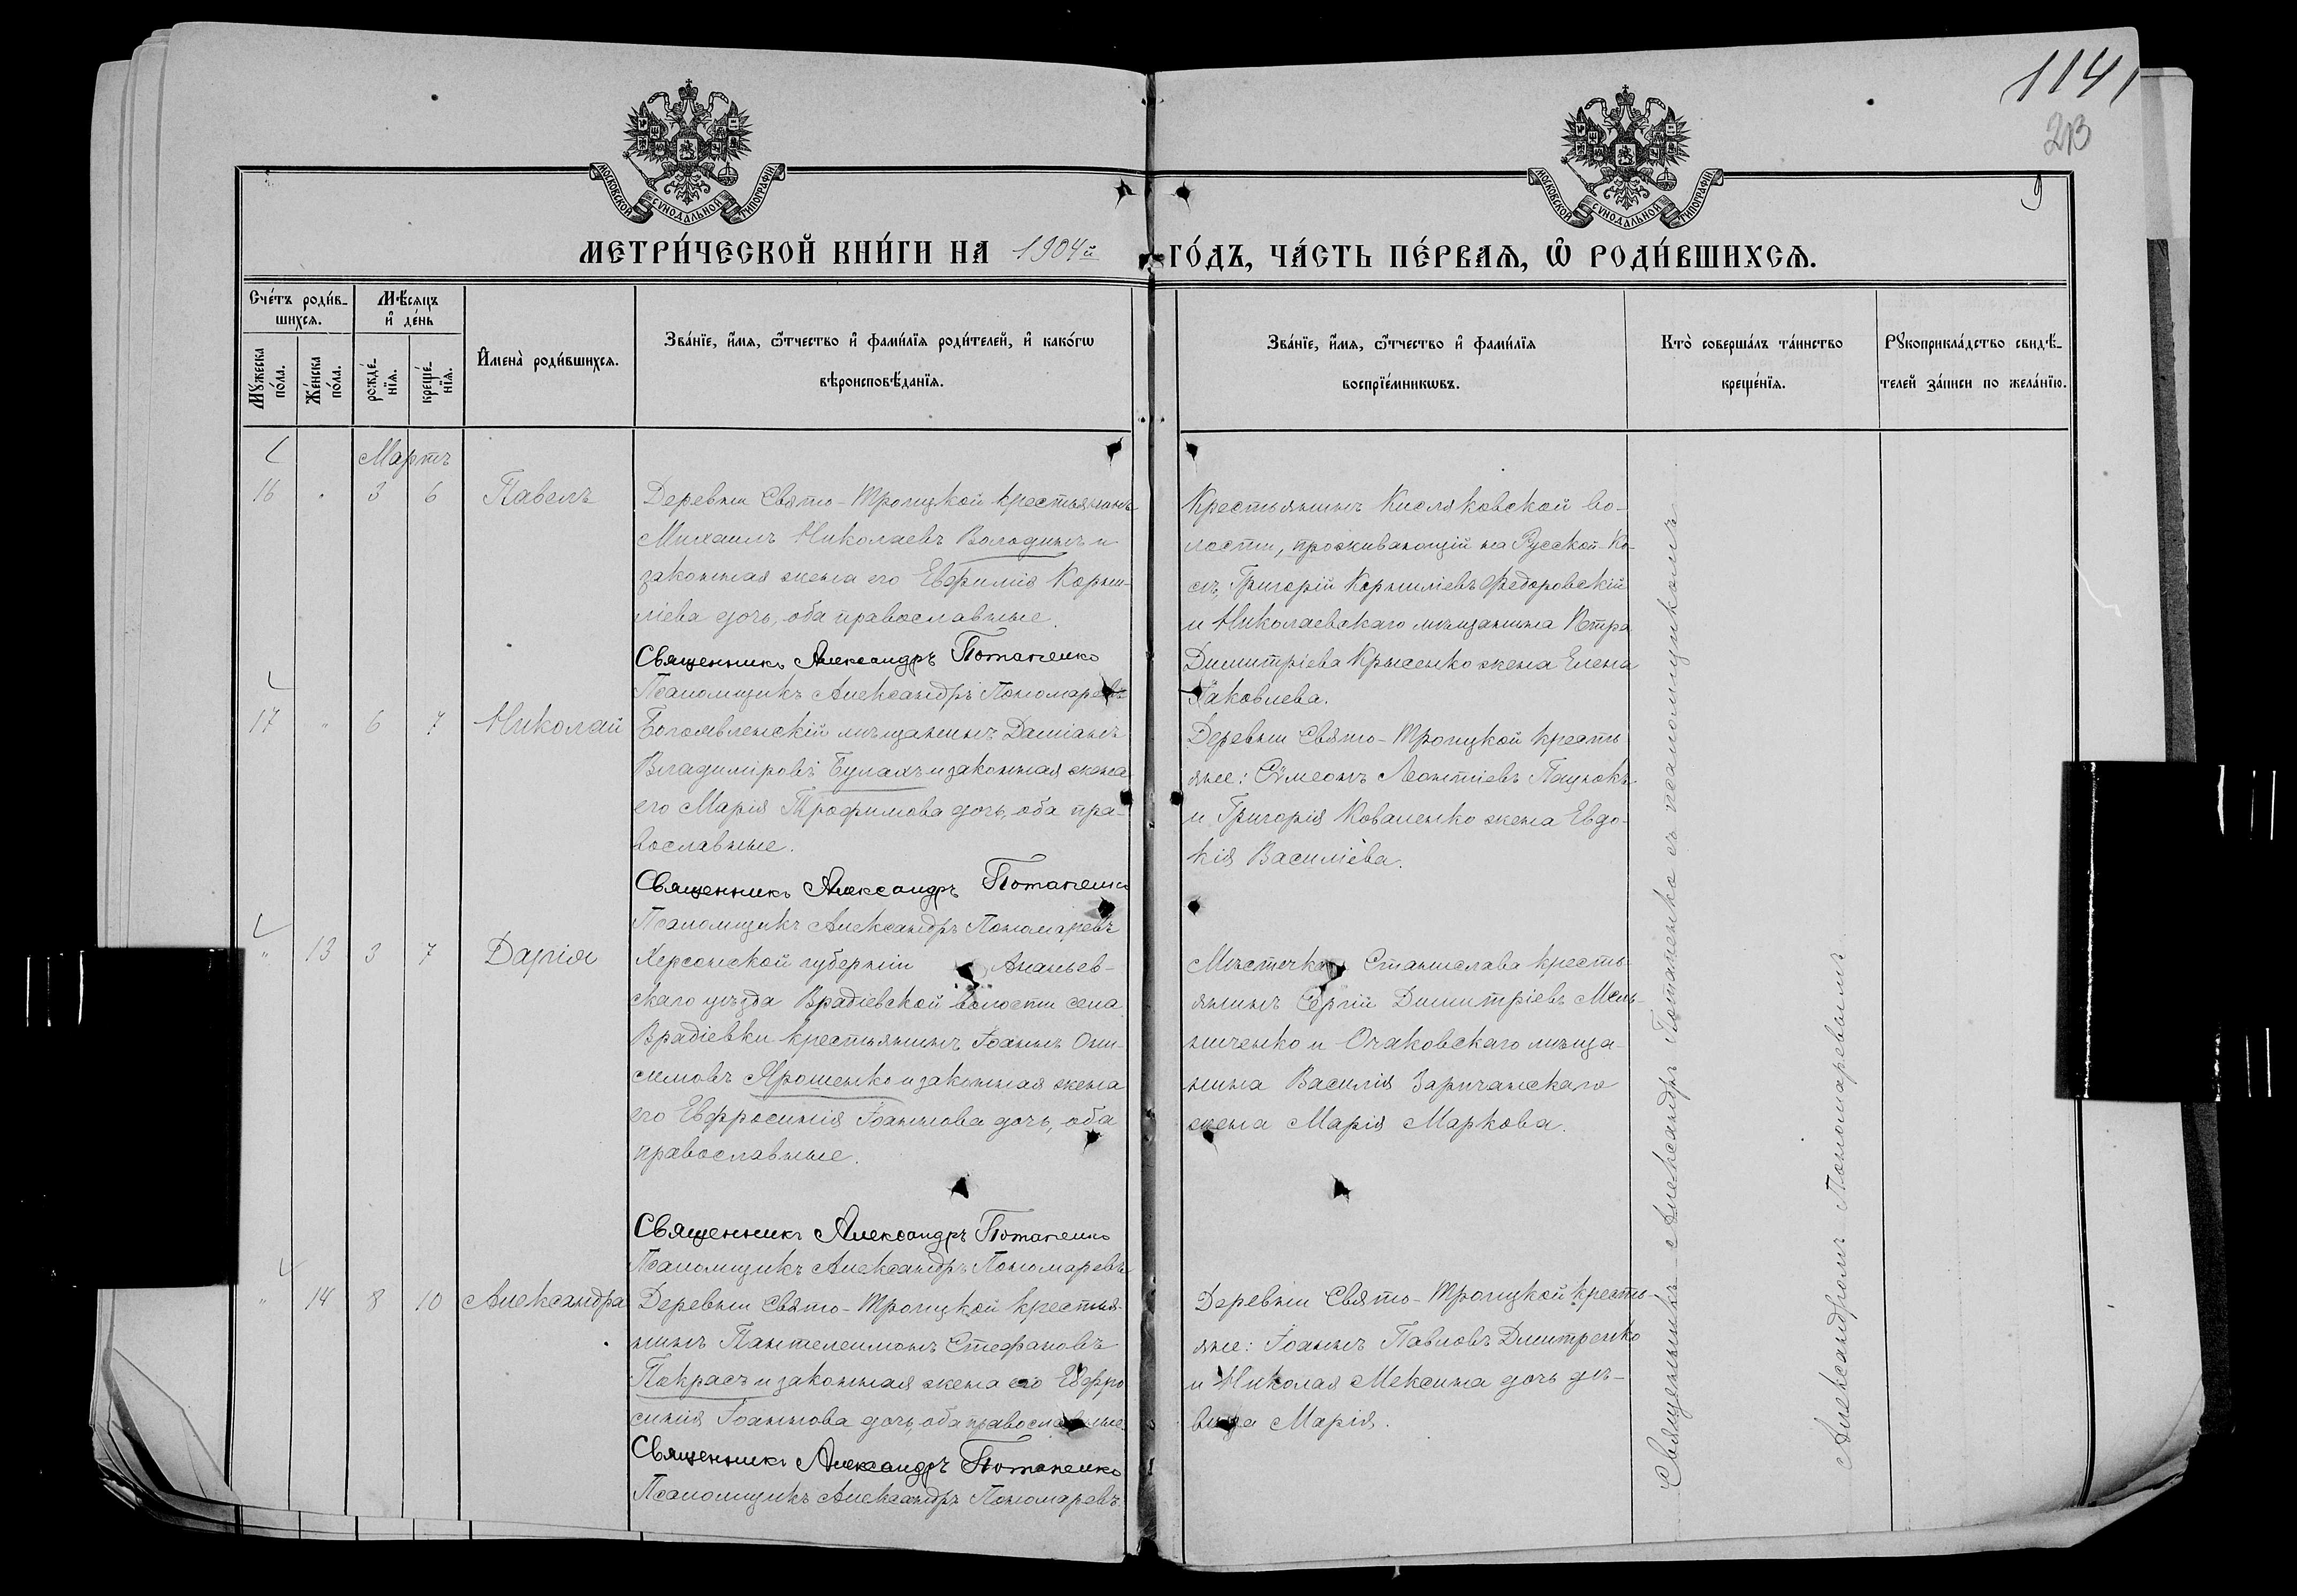 1141
213
9
МОСКОВСКОЙ СУНОДАЛЬНОЙ ТИПОГРАФІИ
МОСКОВСКОЙ СУНОДАЛЬНОЙ ТИПОГРАФІИ
МЕТРИ́ЧЕСКОЙ КНИ́ГИ НА 1904й ГО́ДЪ, ЧА́СТЬ ПЕ́РВАѦ, Ѡ РОДИ́ВШИХСѦ.
Сче́тъ роди́в-
шихсѧ.
Мꙋ́жеска по́ла.
Же́нска по́ла.
Мѣ́сѧцъ
и҆ де́нь
рожде́-
нїѧ.
креще́-
нїѧ.
И҆мена̀ роди́вшихсѧ.
Зва́нїе, и҆́мѧ, ѻ҆́тчество и҆ фами́лїѧ роди́телей, и҆ како́гѡ
вѣроисповѣ́данїѧ.
Зва́нїе, и҆́мѧ, ѻ҆́тчество и҆ фами́лїѧ
воспрїе́мникѡвъ.
Кто̀ соверша́лъ та́инство
креще́нїѧ.
Рꙋкоприкла́дство свидѣ́-
телей за́писи по жела́нїю.
Мартъ
16 " 3 6 Павелъ
Деревни Свято-Троицкой крестьянинъ
Михаилъ Николаевъ Володинъ и
законная жена его Евфимія Корни-
ліева дочь, оба православные.
Священникъ Александръ Потапенко
Псаломщикъ Александръ Пономаревъ
Крестьянинъ Кисляковской во-
лости, проживающій на Русской-Ко-
съ, Григорій Корниліевъ Федоровскій
и Николаевскаго мѣщанина Петра
Димитріева Крысенко жена Елена
Іаковлева.
17 " 6 7 Николай
Богоявленскій мѣщанинъ Даміанъ
Владиміровъ Булахъ и законная жена
его Марія Трофимова дочь, оба пра-
вославные.
Священникъ Александръ Потапенко
Псаломщикъ Александръ Пономаревъ
Деревни Свято-Троицкой кресть
яне: Сѵмеонъ Леонтіевъ Пацюкъ
и Григорія Коваленко жена Евдо-
кія Василіева.
" 13 3 7 Дарія
Херсонской губерніи Ананьев-
скаго уѣзда Врадіевской волости села
Врадіевки крестьянинъ Іоаннъ Они-
симовъ Ярошенко и законная жена
его Евфросинія Іоаннова дочь, оба
православные.
Священникъ Александръ Потапенко
Псаломщикъ Александръ Пономаревъ
Мѣстечка Станислава кресть
янинъ Сергій Димитріевъ Мель-
ниченко и Очаковскаго мѣща-
нина Василія Заричанскаго
жена Марія Маркова.
" 14 8 10 Александра
Деревни Свято-Троицкой крестья-
нинъ Пантелеимонъ Стефановъ
Покрасъ и законная жена его Евфро
синія Іоаннова дочь, оба православные.
Священникъ Александръ Потапенко
Псаломщикъ Александръ Пономаревъ.
Деревни Свято-Троицкой кресть-
яне: Іоаннъ Павловъ Дмитренко
и Николая Мексина дочь дѣ-
вица Марія.
Священникъ Александръ Потапенко съ псаломщикомъ
Александромъ Пономаревымъ